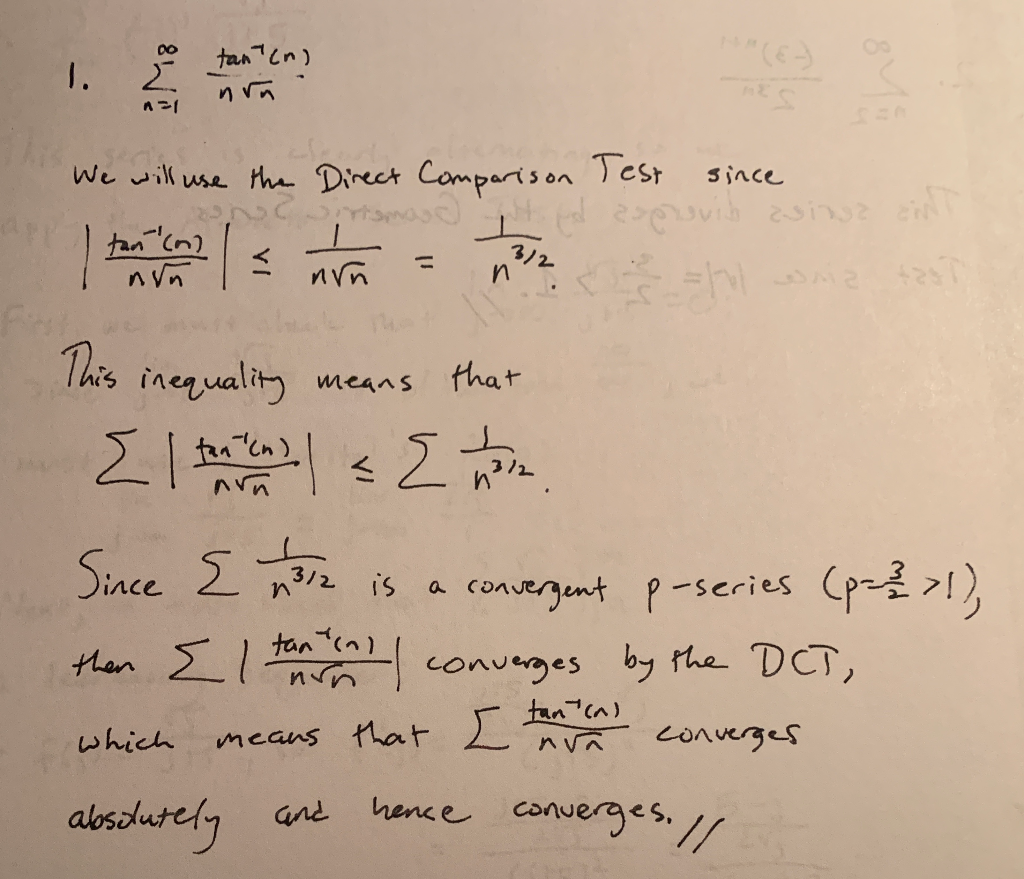 1. ∑_{n=1}^{∞} tan⁻¹(n) / n√n
We will use the Direct Comparison Test since
| tan⁻¹(n) / n√n | ≤ 1 / n√n = 1 / n^{3/2}.
This inequality means that
∑ | tan⁻¹(n) / n√n | ≤ ∑ 1 / n^{3/2}.
Since ∑ 1 / n^{3/2} is a convergent p-series (p=3/2 >1),
then ∑ | tan⁻¹(n) / n√n | converges by the DCT,
which means that ∑ tan⁻¹(n) / n√n converges
absolutely and hence converges. //